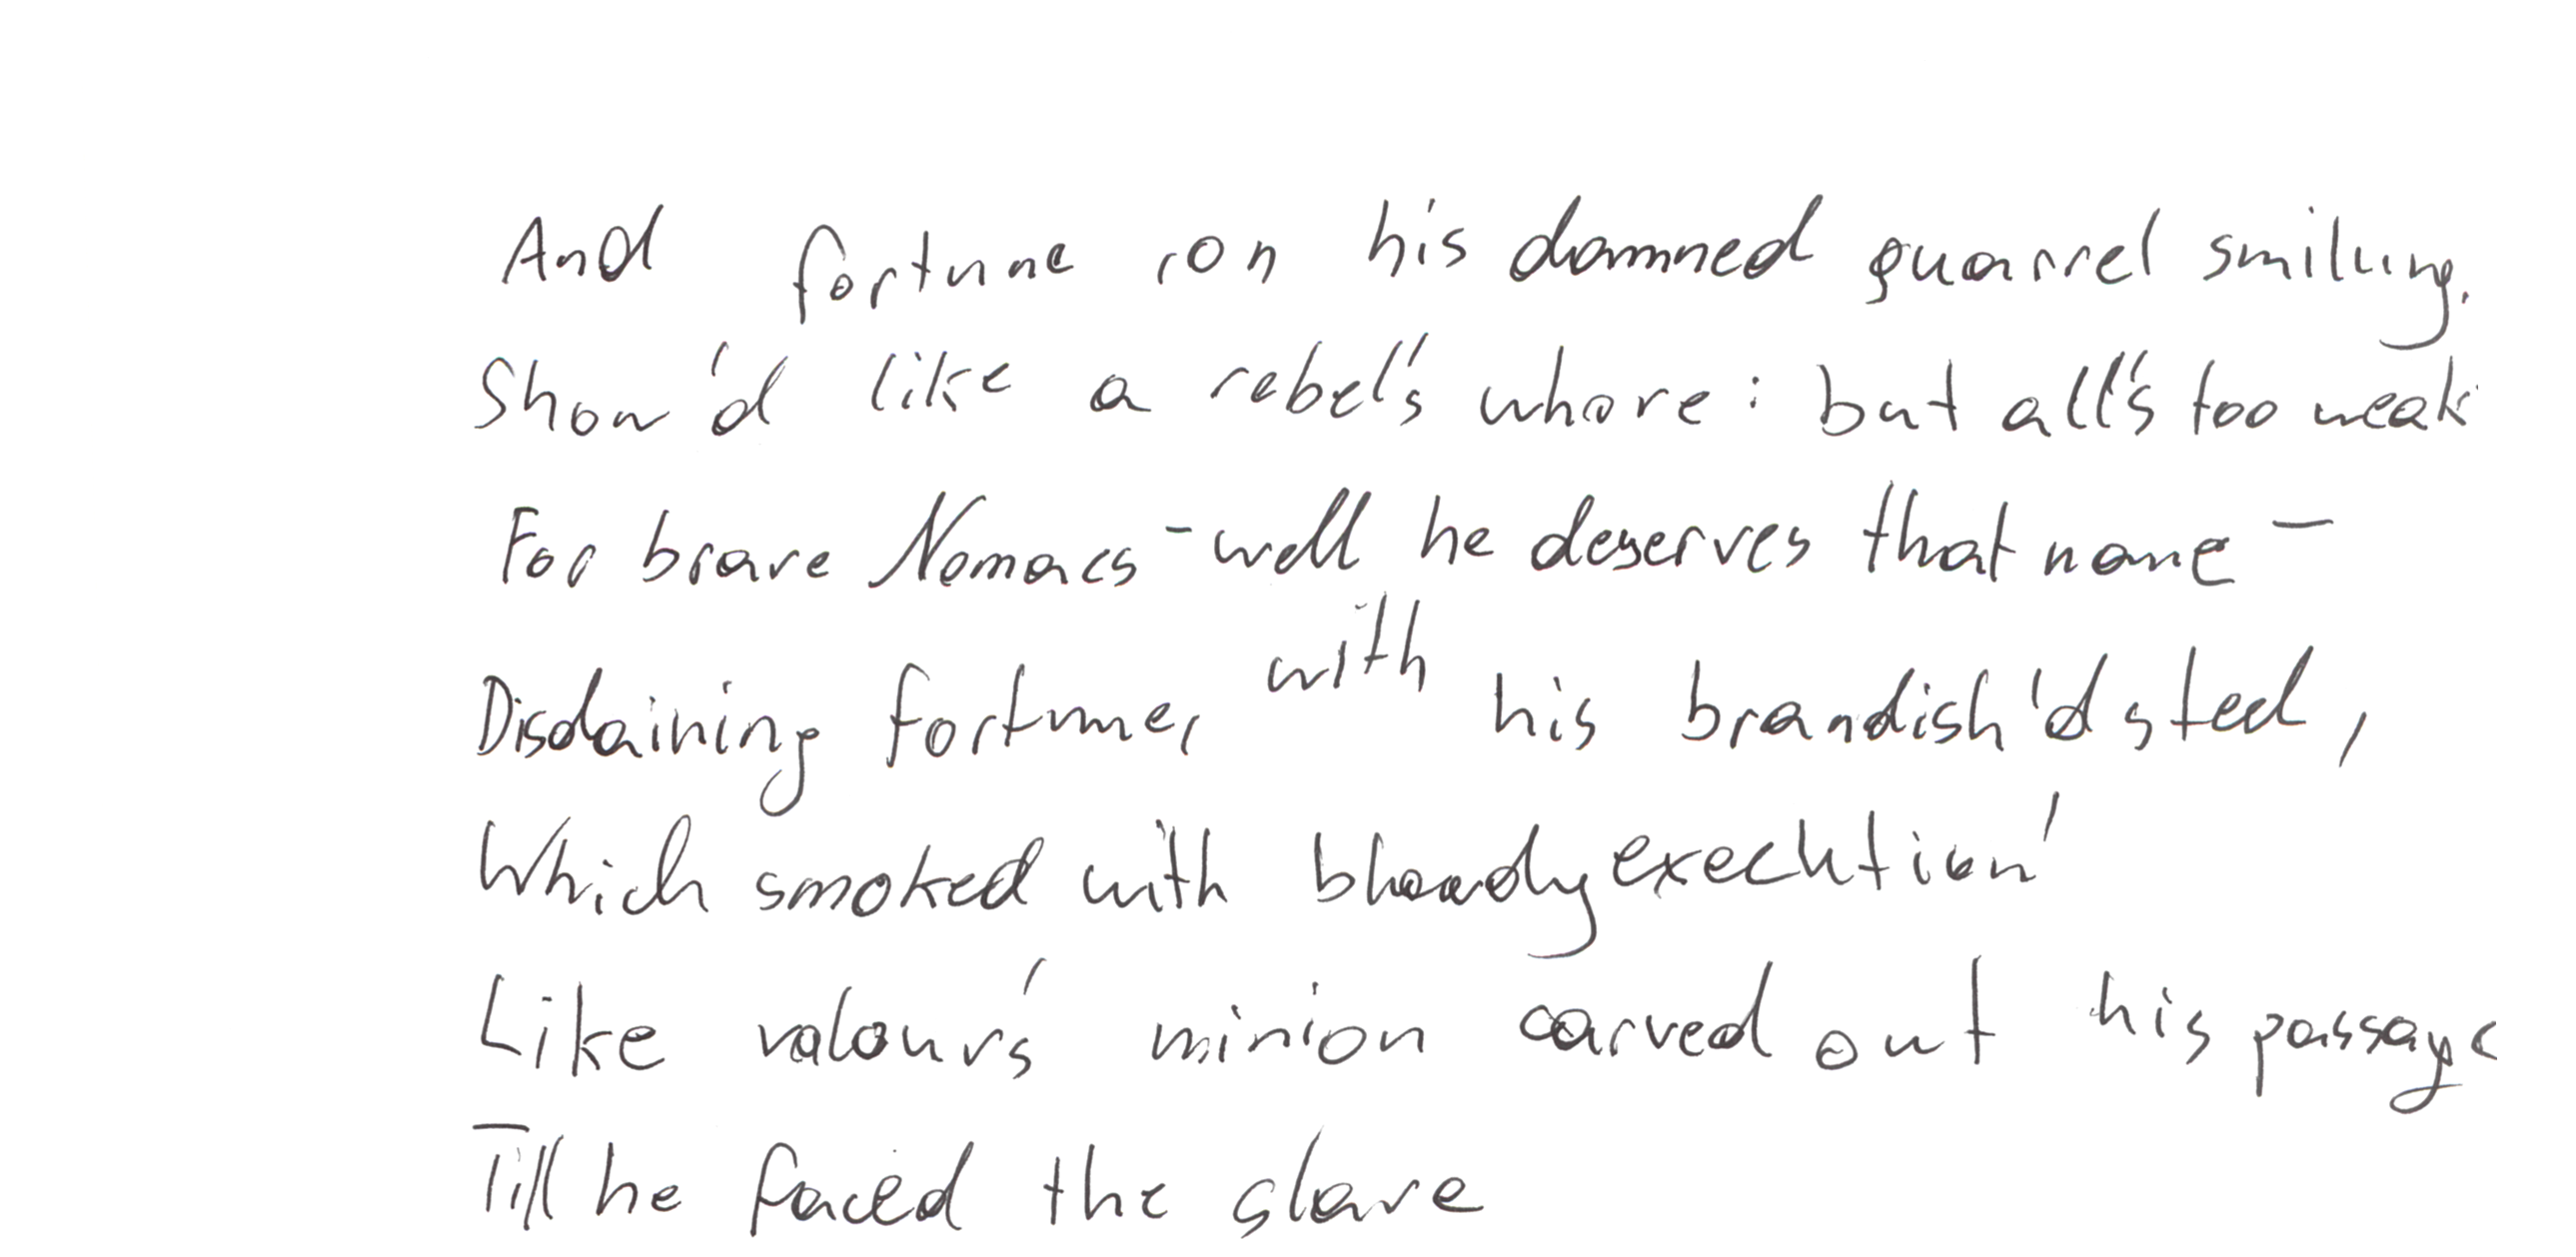 And fortune ron his damned quarrel smiling,
Show'd like a rebel's whore: but all's too weak
For brave Nomacs - well he deserves that name -
Disdaining fortune, with his brandish'd steel,
Which smoked with bloody execution'
Like valour's minion carved out his passage
Till he faced the slave